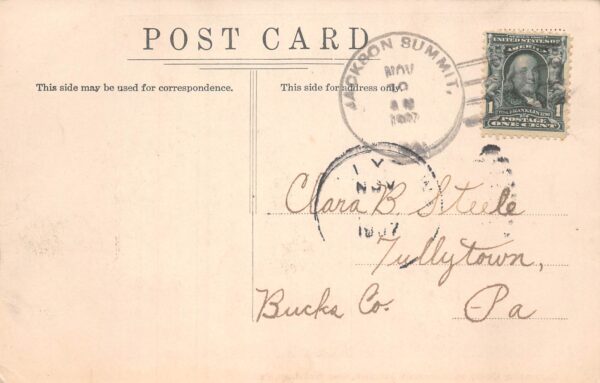 POST CARD
This side may be used for correspondence.
This side for address only.
JACKSON SUMMIT,
NOV
AM
1907
UNITED STATES OF
AMERICA
1 1
FRANKLIN
POSTAGE
ONE CENT
NOV
1907
Clara B. Steele
Tullytown,
Bucks Co. Pa